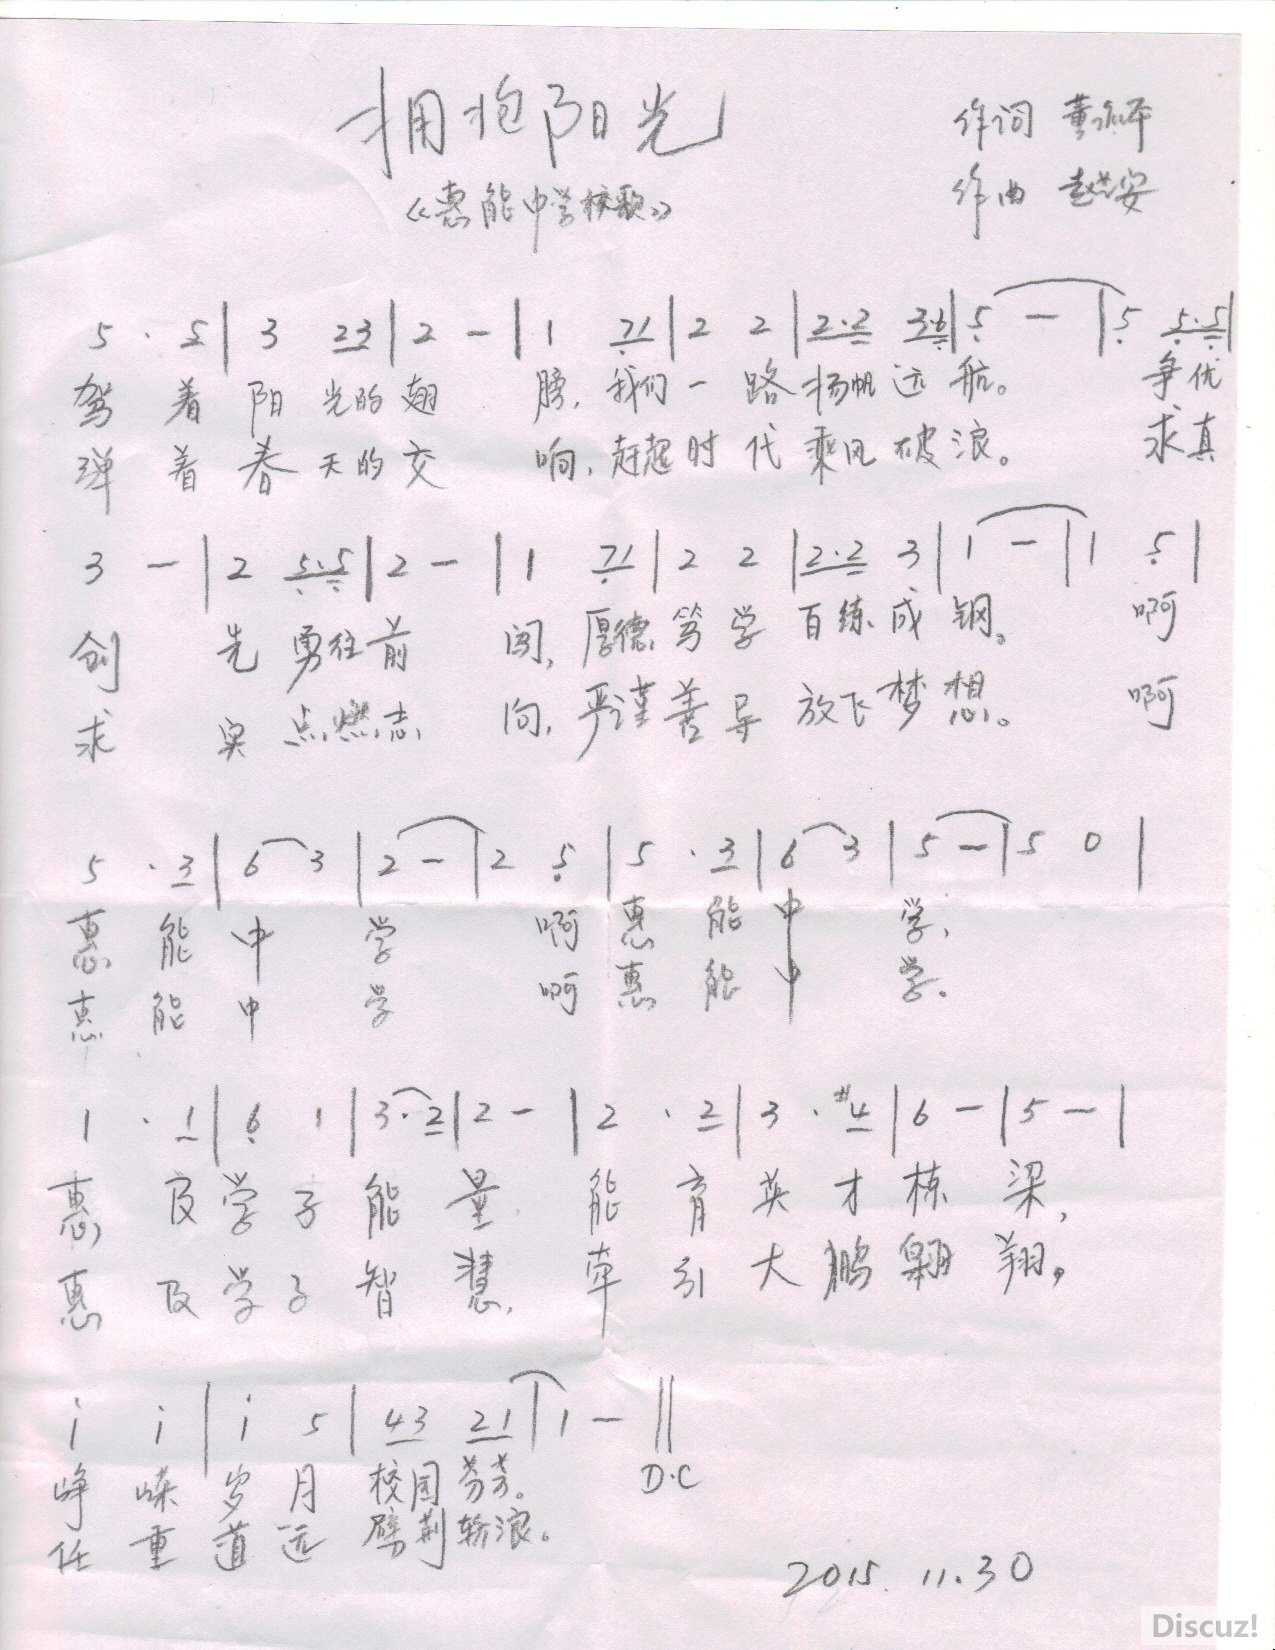 拥抱阳光
作词 董
《惠能中学校歌》
作曲 赵安
5 · 5 | 3 23 | 2 - | 1 71 | 2 2 | 2·2 3·6 | 5 - | 5 5·5 |
驾着阳光的翅膀,我们一路扬帆远航。争优
弹着春天的交响,赶超时代乘风破浪。求真
3 - | 2 5·5 | 2 - | 1 71 | 2 2 | 2·2 3 | 1 - | 1 5 |
创先勇往前闯,厚德笃学百练成钢。啊
求实点燃志向,严谨善导放飞梦想。啊
5 · 3 | 6 3 | 2 - | 2 5 | 5 · 3 | 6 3 | 5 - | 5 0 |
惠能中学 啊惠能中学,
惠能中学 啊惠能中学。
1 · 1 | 6 1 | 3·2 | 2 - | 2 · 2 | 3 · #4 | 6 - | 5 - |
惠及学子能量 能育英才栋梁,
惠及学子智慧,牵引大鹏翱翔,
i i | i 5 | 43 21 | 1 - ||
峥嵘岁月校园芬芳。
D.C
任重道远劈荆斩浪。
2015. 11.30
Discuz!